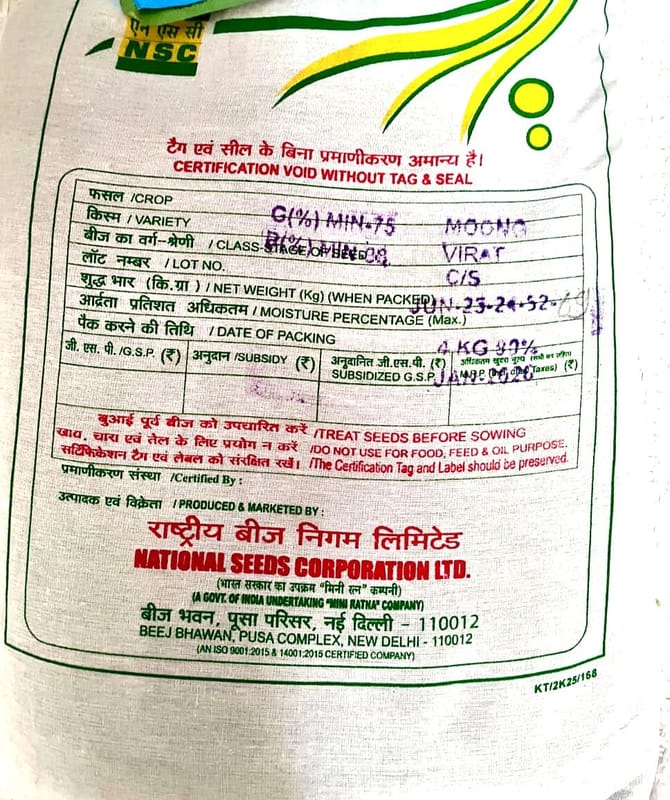 एन एस सी
NSC
टैग एवं सील के बिना प्रमाणीकरण अमान्य है।
CERTIFICATION VOID WITHOUT TAG & SEAL
फसल /CROP MOONG
किस्म / VARIETY G(%) MIN-75 VIRAT
बीज का वर्ग-श्रेणी / CLASS-STAGE OF SEED P(%) MIN-98 C/S
लॉट नम्बर / LOT NO.
शुद्ध भार (कि.ग्रा ) / NET WEIGHT (Kg) (WHEN PACKED)
आर्द्रता प्रतिशत अधिकतम / MOISTURE PERCENTAGE (Max.)
पैक करने की तिथि / DATE OF PACKING 4 KG
जी. एस. पी. /G.S.P. (₹) अनुदान /SUBSIDY (₹) अनुदानित जी.एस.पी. (₹) अधिकतम खुदरा मूल्य
SUBSIDIZED G.S.P. M.R.P. Taxes) (₹)
बुआई पूर्व बीज को उपचारित करें /TREAT SEEDS BEFORE SOWING
खाद्य, चारा एवं तेल के लिए प्रयोग न करें /DO NOT USE FOR FOOD, FEED & OIL PURPOSE.
सर्टिफिकेशन टैग एवं लेबल को संरक्षित रखें। /The Certification Tag and Label should be preserved.
प्रमाणीकरण संस्था /Certified By :
उत्पादक एवं विक्रेता / PRODUCED & MARKETED BY :
राष्ट्रीय बीज निगम लिमिटेड
NATIONAL SEEDS CORPORATION LTD.
(भारत सरकार का उपक्रम "मिनी रत्न" कम्पनी)
(A GOVT. OF INDIA UNDERTAKING "MINI RATNA" COMPANY)
बीज भवन, पूसा परिसर, नई दिल्ली - 110012
BEEJ BHAWAN, PUSA COMPLEX, NEW DELHI - 110012
(AN ISO 9001:2015 & 14001:2015 CERTIFIED COMPANY)
KT/2K25/168